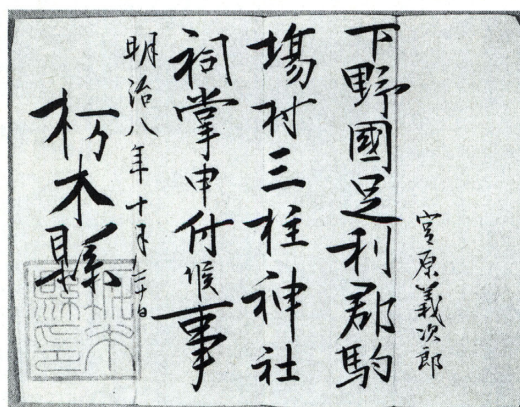 宮原義次郎
下野國足利郡駒
塲村三柱神社
祠掌申付候事
明治八年十月二十日
杤木縣